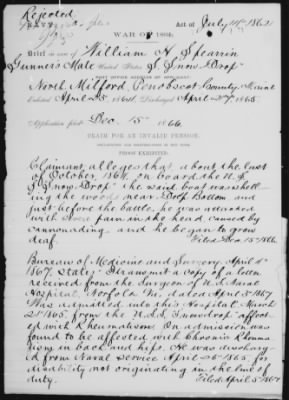 Rejected
Navy
Act of July 14th 1862
WAR OF 1861.
Brief in case of William H. Spearrin
Gunner's Mate United States S. Snow Drop
POST OFFICE ADDRESS OF APPLICANT:
North Milford, Penobscot County, Maine
Enlisted April 25, 1864, Discharged April 27, 1865.
Application filed Dec. 15 1866.
CLAIM FOR AN INVALID PENSION.
PROOF EXHIBITED.
Claimant alleges that about the last
of October, 1864, on board the U.S.
S. "Snow Drop" the said boat was shell-
ing the woods near Deep Bottom and
just before the battle, he was attacked
with severe pain in the head, caused by
cannonading and he began to grow
deaf. Filed Dec. 15th 1866.
Bureau of Medicine and Surgery, April 4th
1867, states: I transmit a copy of a letter
received from the Surgeon of U.S. Naval
Hospital, Norfolk Va, dated April 3d 1867
Was admitted into this Hospital March
25th 1865, from the U.S.S. Snowdrop affect-
ed with Rheumatism. On admission was
found to be affected with Chronic Rheuma-
tism in back and hips. He was discharg-
ed from Naval service April 26th 1865, for
disability not originating in the line of
duty. Filed April 5, 1867